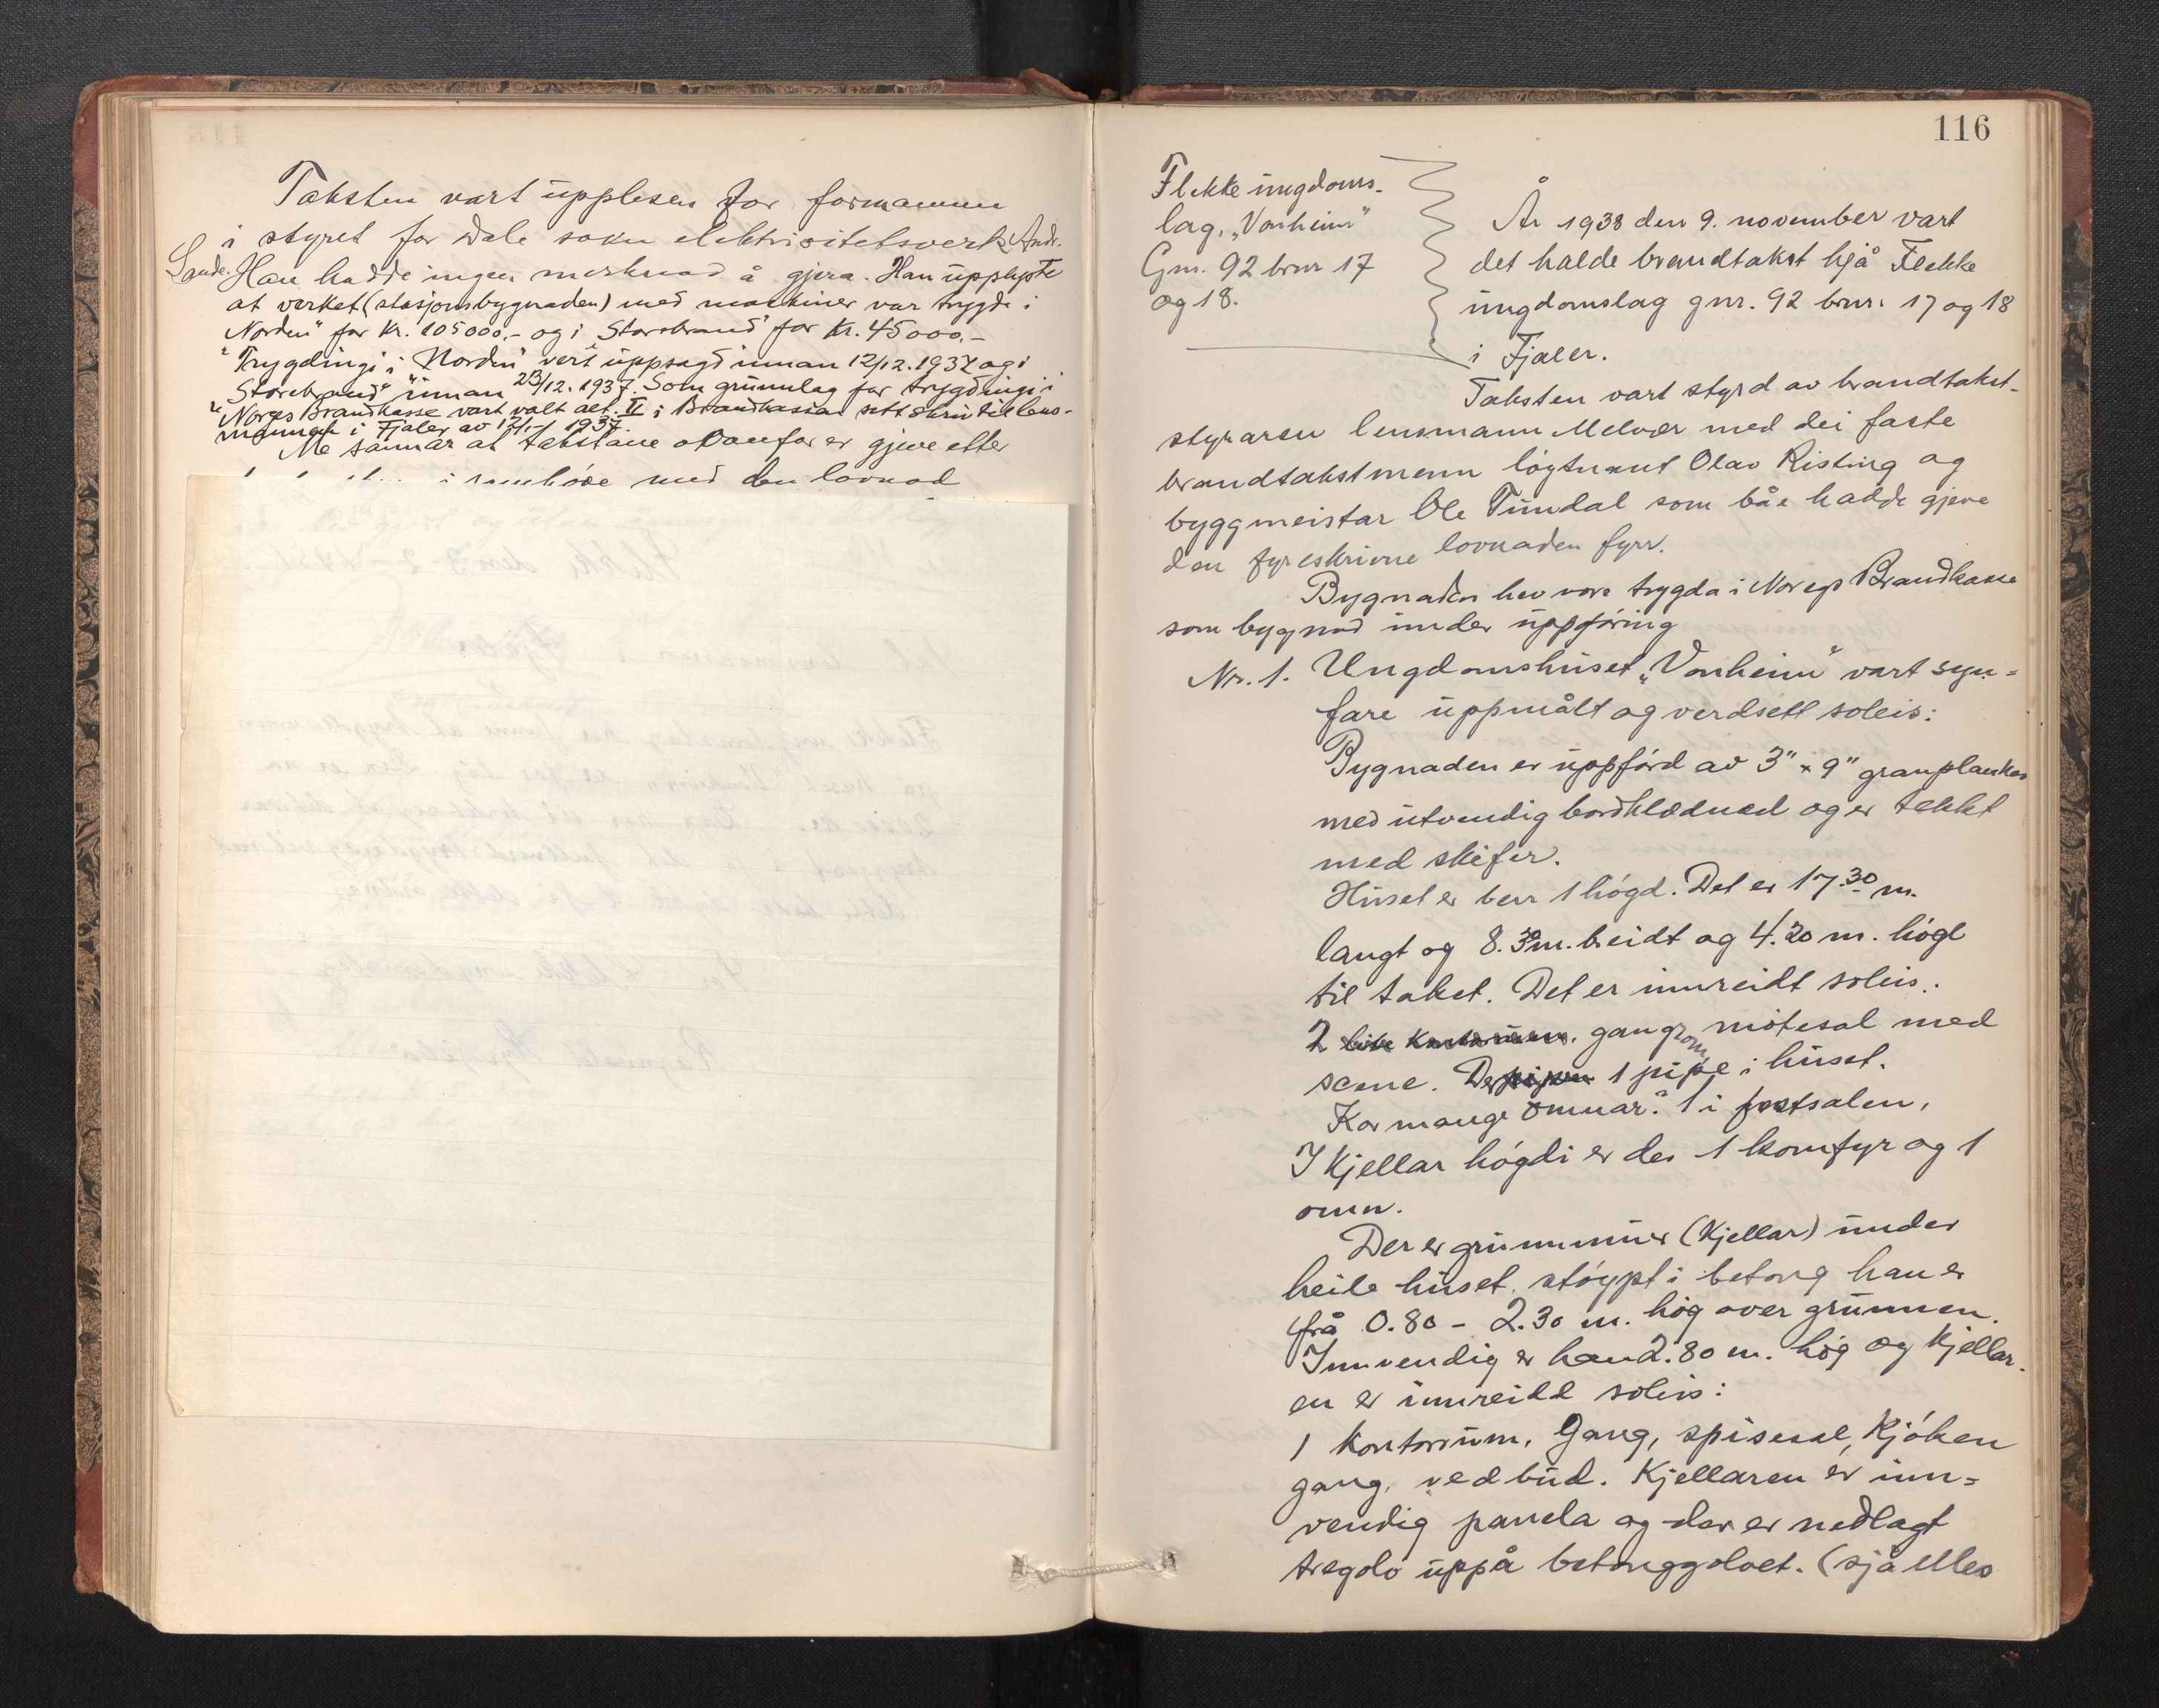 Taksten vart upplesen for formannen
i styret for Dale sokn elektrisitetsverk Andr.
Sande. Han hadde ingen merknad å gjera. Han upplyste
at verket (stasjonsbygnaden) med maskiner var trygde i
"Norden" for kr. 105000,- og i "Storebrand" for kr. 45000,-
Trygdingi i "Norden" vert uppsagd innan 12/12.1937 og i
"Storebrand" innan 23/12.1937. Som grunnlag for trygdingi i
Norges Brandkasse vart valt alt. II i Brandkassa sitt skriv til lens-
mannen i Fjaler av 1937.
Me sannar at takstane ovanfor er gjeve etter
i samhøve med den lovnad
116
Flekke ungdoms-
lag, „Vonheim"
Gnr. 92 bnr 17
og 18.
År 1938 den 9. november vart
det halde brandtakst hjå Flekke
ungdomslag gnr. 92 bnr. 17 og 18
i Fjaler.
Taksten vart styrd av brandtakst-
styraren lensmann Melvær med dei faste
brandtakstmenn løytnant Olav Risting og
byggmeistar Ole Tundal som båe hadde gjeve
den fyreskrivne lovnaden fyrr.
Bygnaden hev vore trygda i Noregs Brandkasse
som bygnad under uppføring
Nr. 1. Ungdomshuset „Vonheim" vart syn=
fare uppmålt og verdsett soleis:
Bygnaden er uppførd av 3" x 9" granplankar
med utvendig bordklædnad og er tekkt
med skifer.
Huset er berr 1 høgd. Det er 17.30 m.
langt og 8.30 m. breidt og 4.20 m. høgt
til taket. Det er innreidt soleis:
2 gangrom, møtesal med
scene. Der 1 pipe i huset.
Kor mange omnar? 1 i festsalen,
I kjellar høgdi er der 1 komfyr og 1
omn.
Der er grunnmur (kjellar) under
heile huset, støypt i betong han er
frå 0.80 - 2.30 m. høg over grunnen.
Innvendig er han 2.80 m. høg og kjellar-
en er innreidd soleis:
1 kontorrum, Gang, spisesal, kjøken
gang, vedbud. Kjellaren er inn=
vendig panela og der er nedlagt
tregolv uppå betonggolvet. (sjå elles